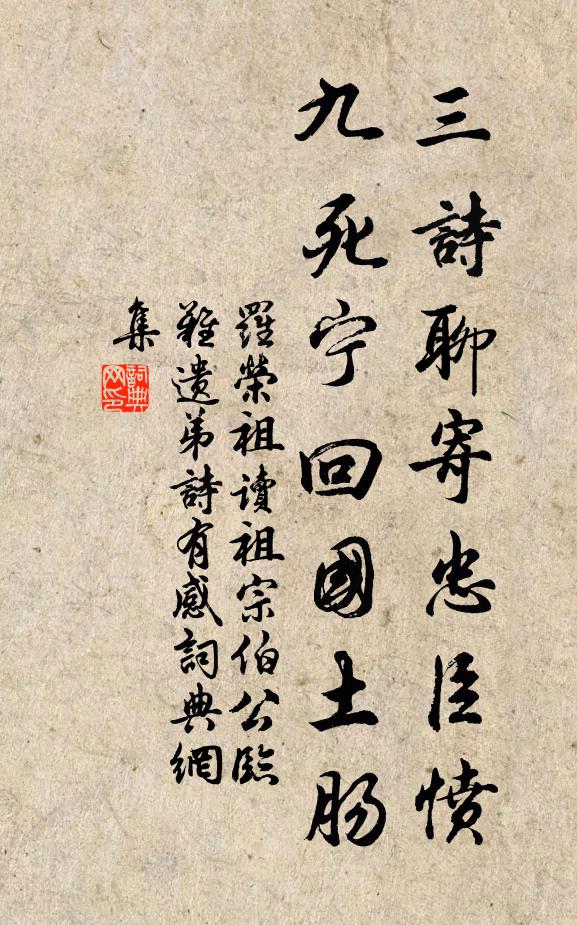 三詩聊寄忠臣憤
九死宁回國士腸
羅榮祖讀祖宗伯公臨
難遺弟詩有感詞典網
集
詞典
网印